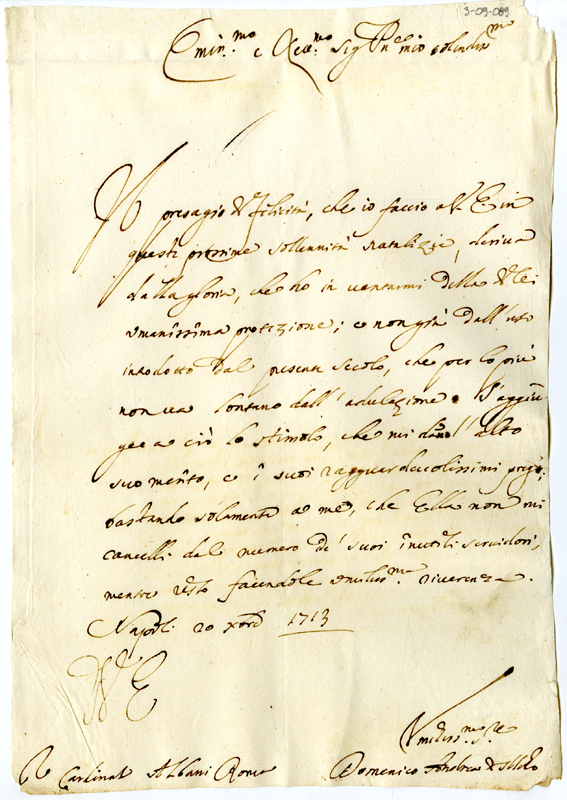 3-09-089
Emin.mo e Rev.mo Sig.r P.ne mio
Il presagio di felicità, che io faccio a V. E. in
queste prossime sollennità natalizie, deriva
dalla gloria, che ho in vantarmi della di lei
umanissima protezione; e non già dall'uso
introdotto dal presente secolo, che per lo più
non va lontano dall'adulazione. S'aggiun-
ge a ciò lo stimolo, che mi danno l'alto
suo merito, e i suoi ragguardevolissimi pregi;
bastando solamente a me, che Ella non mi
cancelli dal numero de' suoi inutili servidori,
mentre resto facendole umiliss.ma riverenza.
Napoli 20 Xbre 1713
D. V. E.
Cardinal Albani Roma
Domenico Andrea